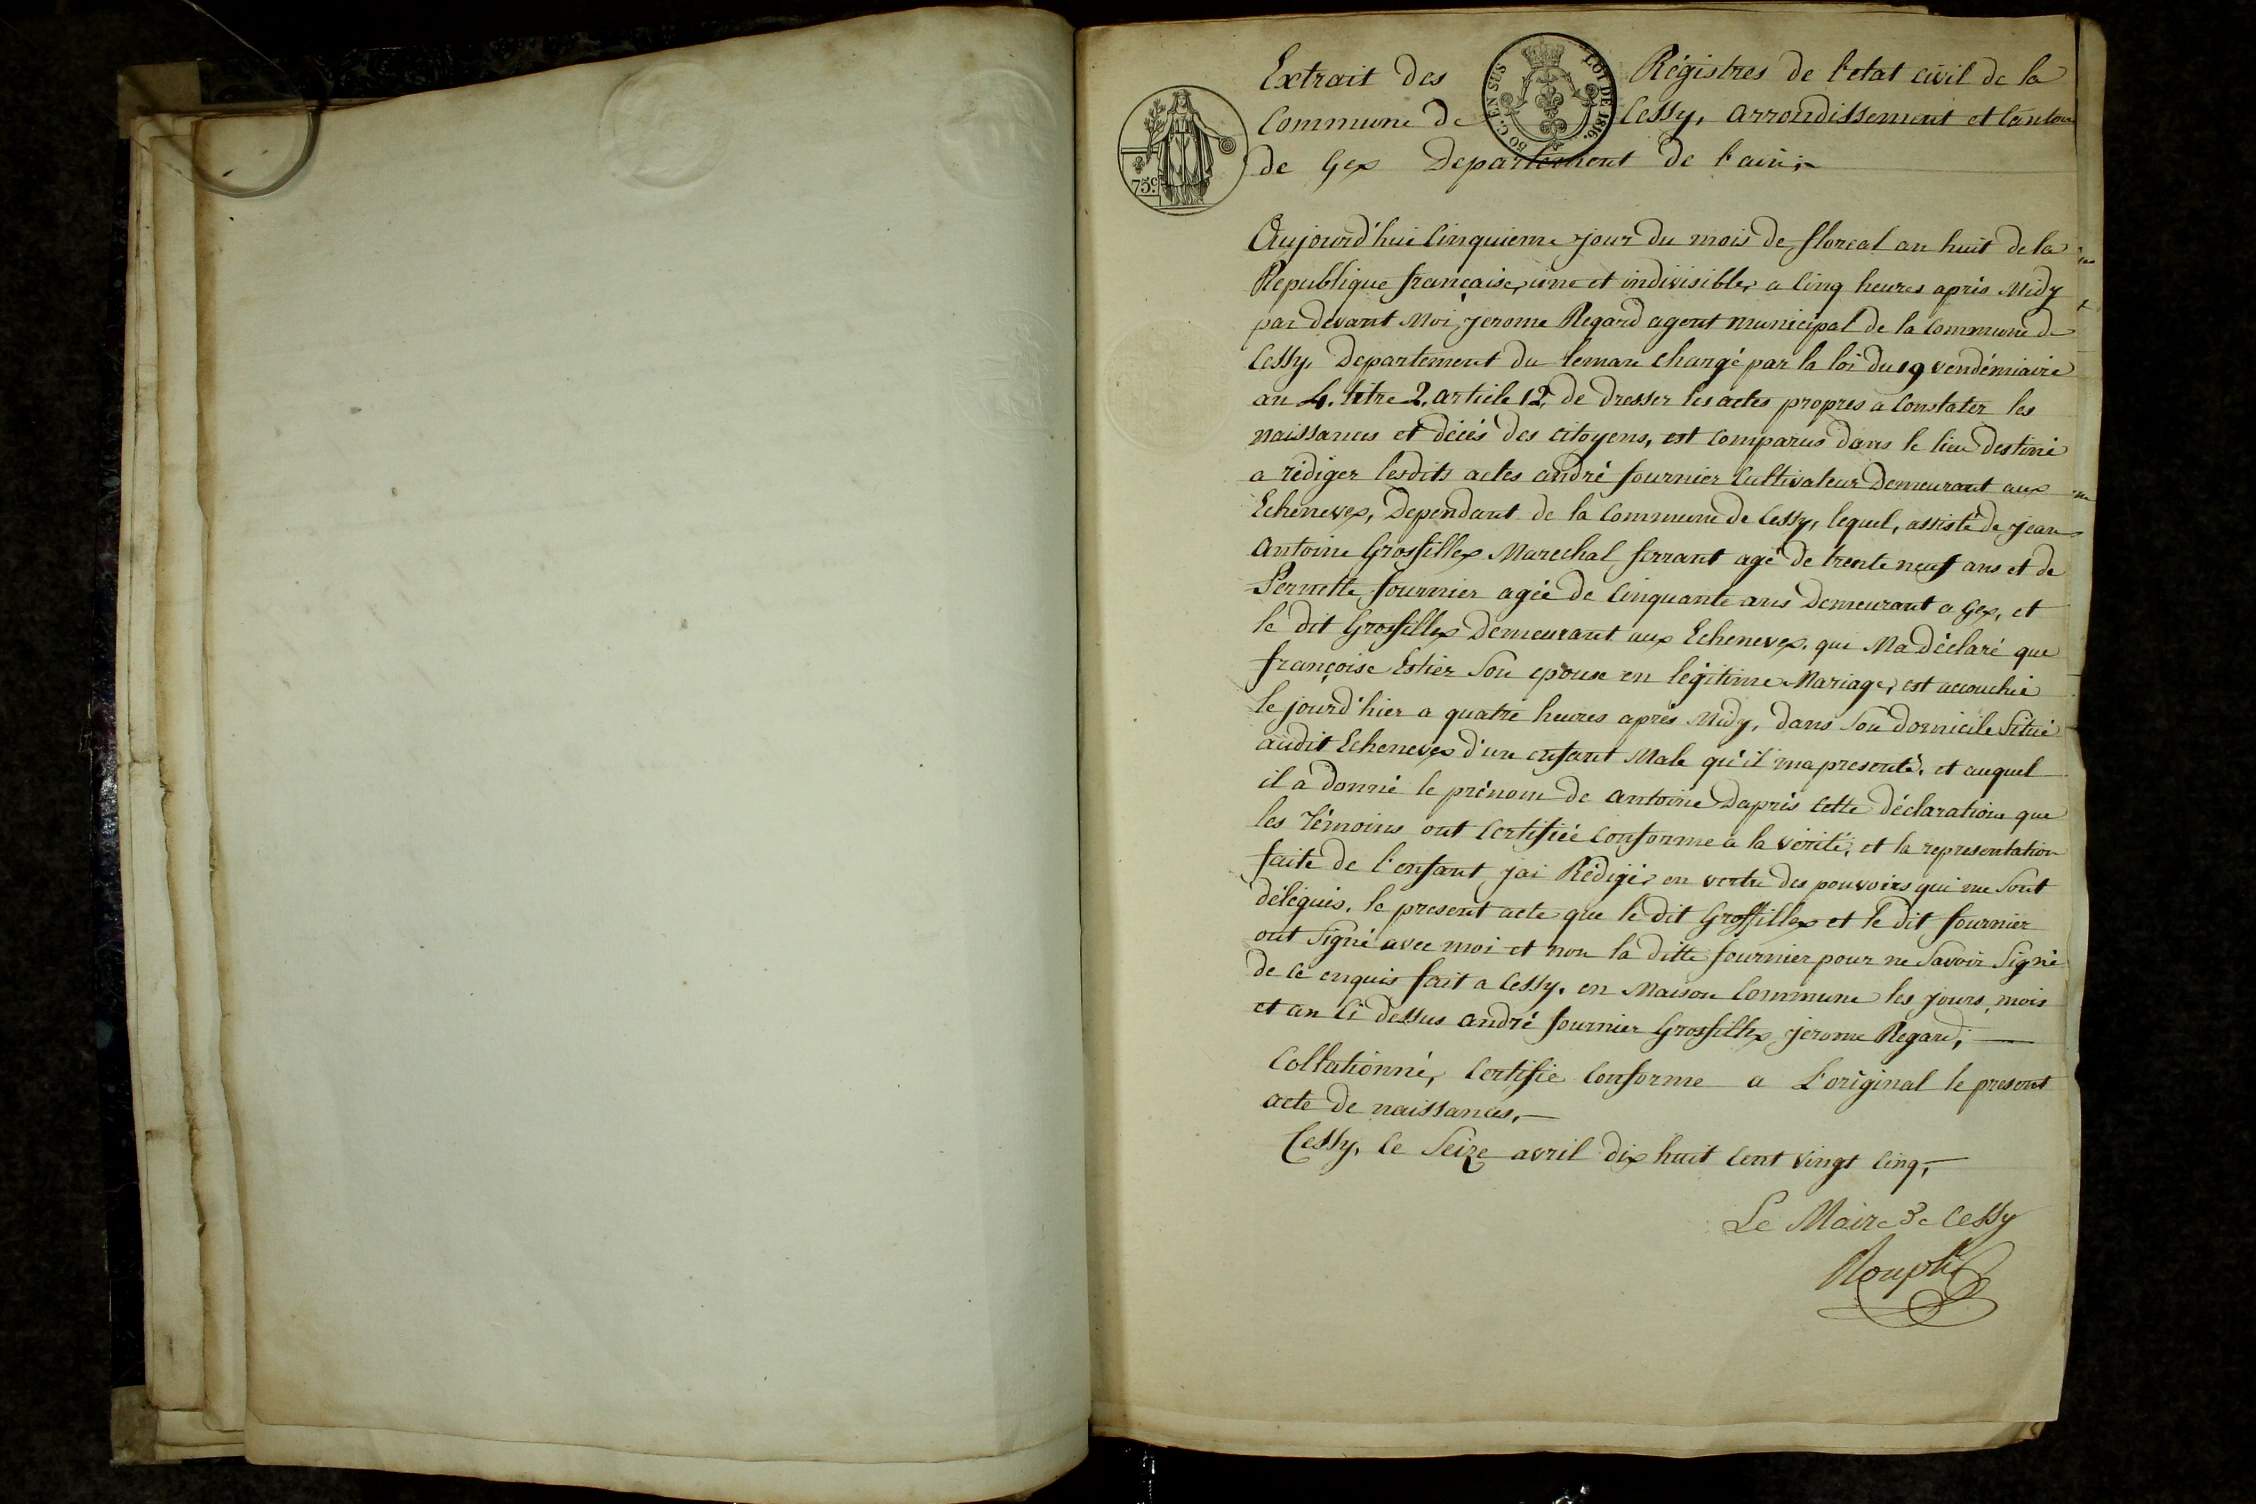 Extrait des Régistres de l'etat civil de la
Commune de Cessy, arrondissement et Canton
de Gex Departement de l'ain;
50 C. EN SUS
LOI DE 1816.
75c
Aujourd'hui Cinquieme jour du mois de floreal an huit de la
Republique française, une et indivisible, a Cinq heures après Midy
par devant Moi, Jerome Regard agent municipal de la Commune de
Cessy, Departement du leman Chargé par la loi du 19 vendémiaire
an 4. titre 2. article 12, de dresser les actes propres a Constater les
naissances et décès des citoyens, est comparus dans le lieu destiné
a rédiger lesdits actes andré fournier Cultivateur Demeurant aux
Echenevex, Dependant de la Commune de Cessy, lequel, assisté de jean
antoine Grosfillex Marechal ferrant agé de trente neuf ans et de
Pernette fournier agée de Cinquante ans Demeurant a Gex, et
le dit Grosfillex Demeurant aux Echenevex. qui Ma déclaré que
françoise Estier Son epouse en légitime Mariage, est accouchée
le jourd'hier a quatre heures après Midy, dans Son domicile Situé
audit Echenevex d'un enfant Male qu'il ma presenté, et auquel
il a donné le prénom de antoine Daprès cette déclaration que
les témoins ont Certifiée Conforme a la vérité, et la representation
faite de l'enfant, jai Rédigé, en vertu des pouvoirs qui me Sont
délégués, le present acte que le dit Grosfillex et le dit fournier
ont Signé avec moi et non la ditte fournier pour ne Savoir Signé
de ce enquis fait a Cessy. en Maison Commune les jours, mois
et an Ci dessus andré fournier Grosfillex, jerome Regard;
Collationné, Certifie Conforme a L'original le present
acte de naissances,
Cessy, le Seize avril dix huit Cent vingt Cinq,
Le Maire de Cessy